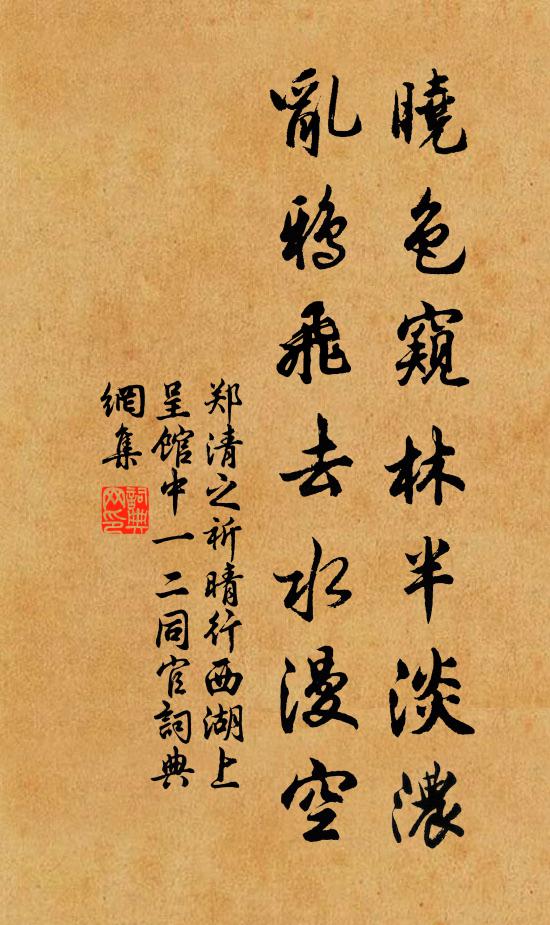 曉色窺林半淡濃
亂鴉飛去水漫空
郑清之祈晴行西湖上
呈馆中一二同官詞典
網集
詞典
网印